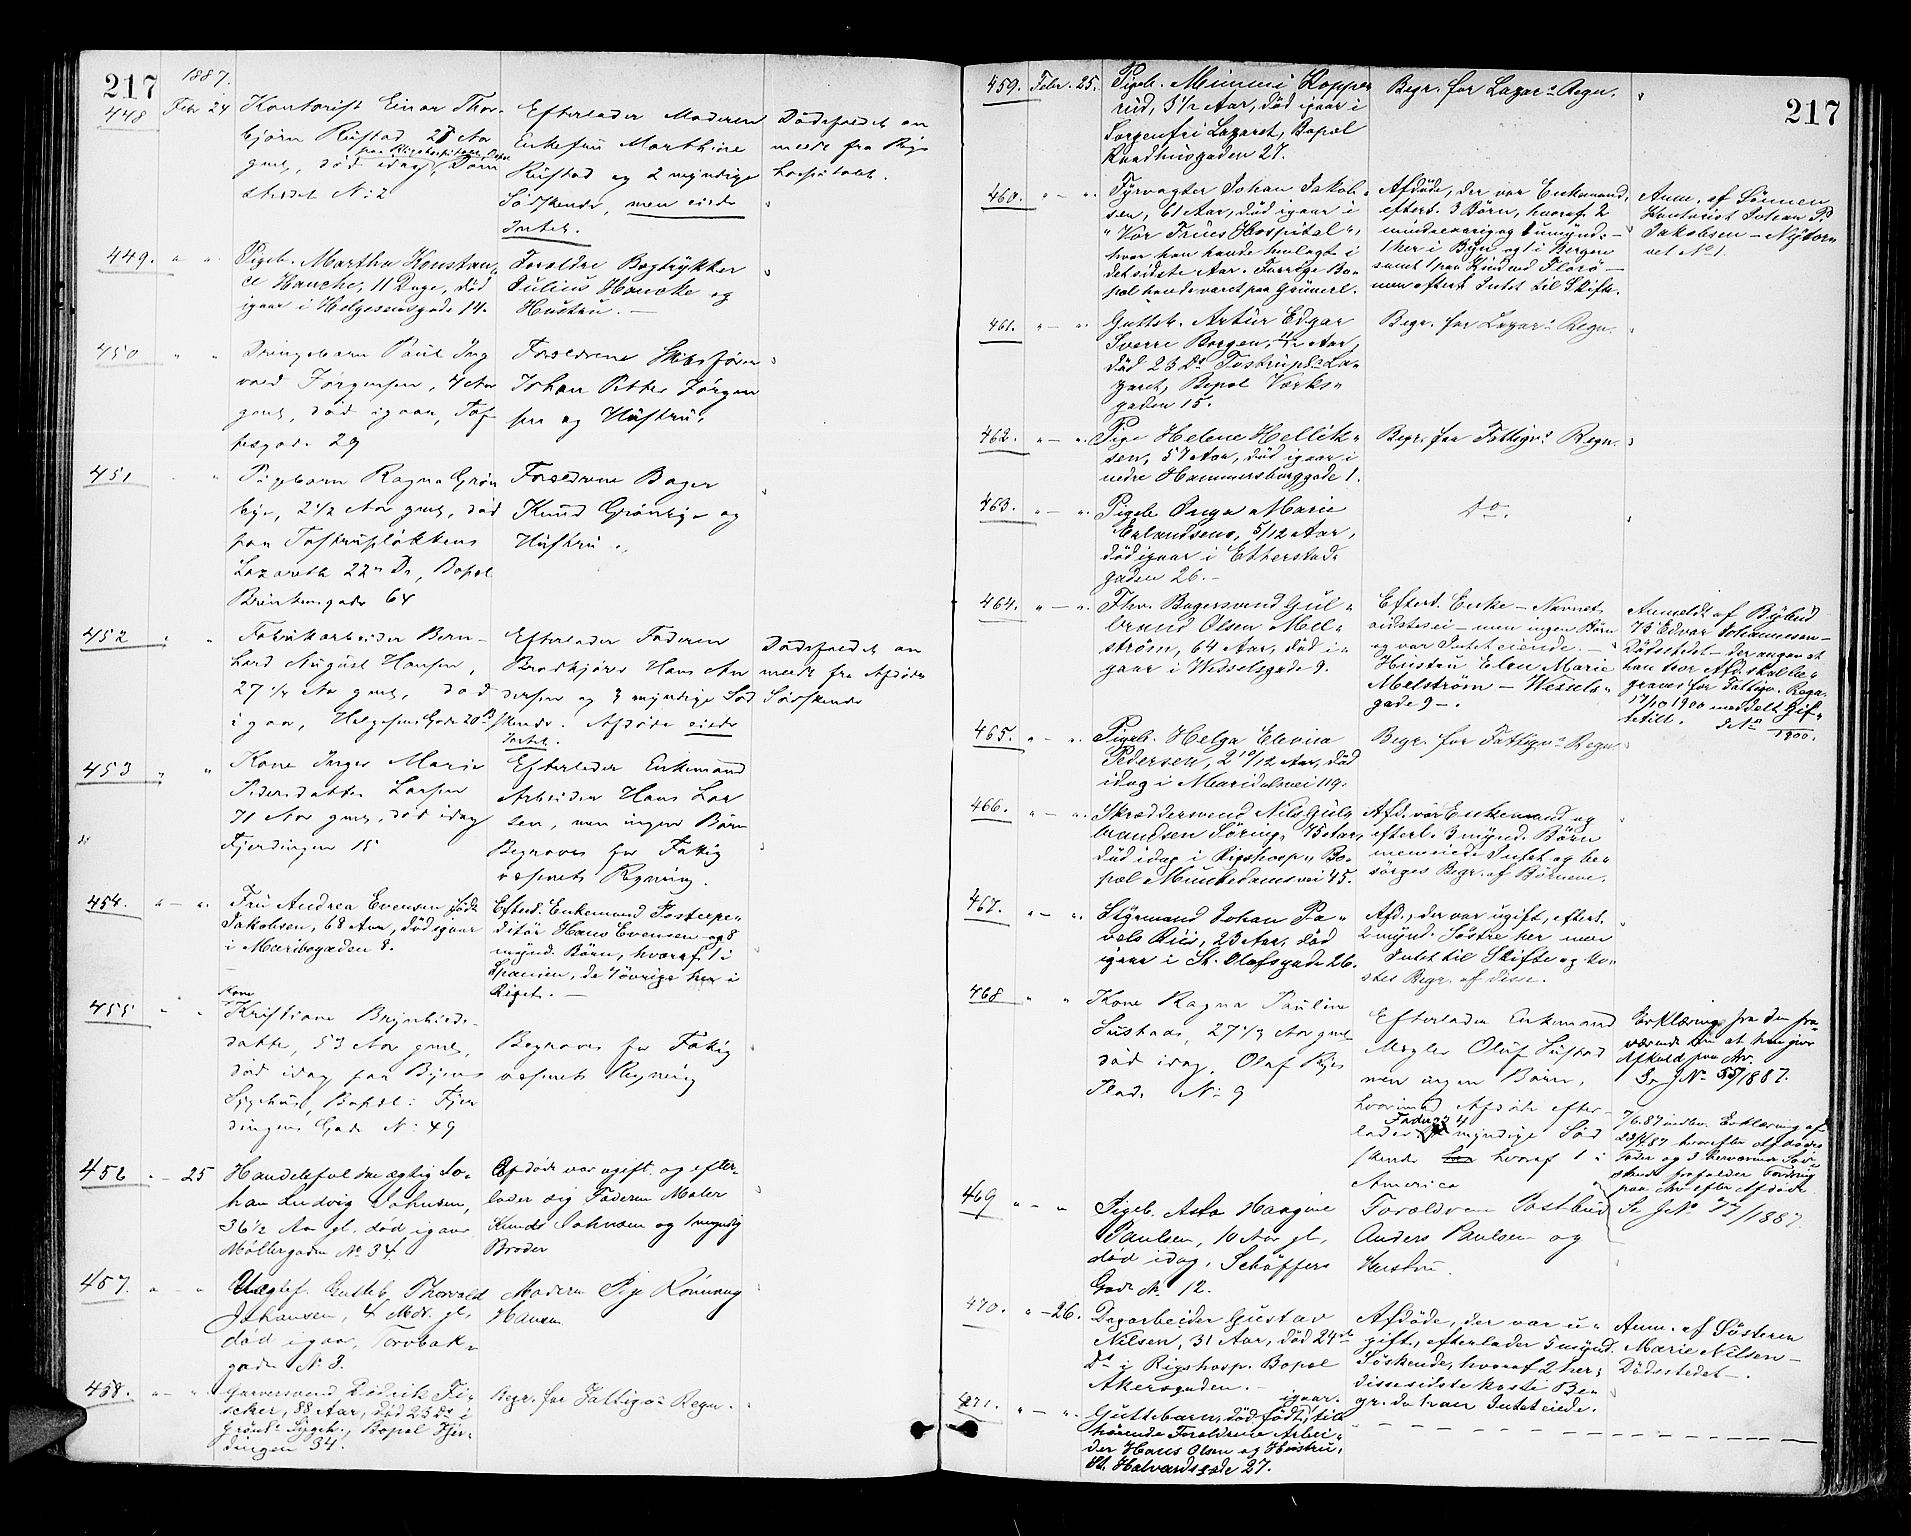 217
1887.
448 Febr 24
Kontorist Einar Thor-
bjørn Rustad, 21 Aar
paa Rigshospitalet, Døds-
gml, død idag,
stedet No 2
Efterlader Moderen
Enkefru Marthine
Rustad og 2 myndige
Sødskende, men eiede
Intet.
Dødsfaldet an
meldt fra Rigs
hospitalet.
449. " "
Pigeb. Martha Konstan-
ce Hancke, 11 Dage, død
igaar i Helgesensgade 14.
Foreldre Bogtrykker
Julius Hancke og
Hustru. —
450 " "
Drengebarn Paul Ing
vald Jørgensen, 4 Aar
gml, død igaar, Tof
tesgade 29
Foreldrene Skibsfører
Johan Petter Jørgen
sen og Hustru.
451 "
Pigebarn Ragna Grøn
bye, 2 1/2 Aar gml, død
paa Tostrupløkkens
Lazareth 22de Ds, Bopæl
Brinkensgade 64
Foreldrene Bager
Knud Grønbye og
Hustru.
452 " "
Fabrikarbeider Bern-
hard August Hansen,
27 1/2 Aar gml, død
igaar, Helgesens Gade 20 B
Efterlader Faderen
Brødkjører Hans An
dersen og 3 myndige Sød
skende. Afdøde eiede
Intet.
Dødsfaldet an
meldt fra Afdødes
Sødskende
453 " "
Kone Inger Marie
Pedersdatter Larsen
71 Aar gml, død idag
Fjerdingen 15
Efterlader Enkemand
Arbeider Hans Lar
sen, men ingen Børn
Begraves for Fattig
væsenets Regning.
454. " — "
Fru Andrea Evensen født
Jakobsen, 68 Aar, død igaar
i Maribogaden 8.
Efterl. Enkemand Postexpe-
ditør Hans Evensen og 8
mynd. Børn, hvoraf 1 i
Spanien, de 7 øvrige her i
Riget. —
455 " "
Kone
Kristiane Brynhilds-
datter, 53 Aar gml,
død idag paa Byens
Sygehus, Bopæl: Fjer
dingens Gade No 49
Begraves for Fattig
væsenets Regning
456 " — 25
Handelsfuldmægtig Jo-
han Ludvig Johnsen,
36 1/2 Aar gl. død igaar
Møllergaden No 34.
Afdøde var ugift og efter-
lader sig Faderen Maler
Knud Johnsen og 1 myndig
Broder
457. " — "
Uægtef. Gutteb. Thorvald
Johansen, 4 Mdr. gl,
død igaar, Torvbak-
gade No 3.
Moderen Pige Rønnaug
Hansen
458. " — "
Garversvend Didrik Fi-
scher, 88 Aar, død 23 Ds i
Grønl. Sygeh., Bopæl Fjer-
dingen 34.
Begr. for Fattigvs Regn.
217
459. Febr. 25.
Pigeb. Mimmi Kopper
rud, 3 1/2 Aar, død igaar i
Sorgenfri Lazaret, Bopæl
Raadhusgaden 27.
Begr. for Lazars Regn.
460. " — "
Fyrvagter Johan Jakob-
sen, 61 Aar, død igaar i
"Vor Frues Hospital",
hvor han havde henligt i
det sidste Aar. Forrige Bo-
pæl havde været paa Grünerl.
Afdøde, der var Enkemand,
efterl. 3 Børn, hvoraf 2
mindreaarig og 1 umynd. —
1 her i Byen og 1 i Bergen
samt 1 paa Kind ved Florø —
men efterl. Intet til Skifte.
Anm. af Sønnen
Kontorist Johan P.
Jakobsen — Nytor-
vet No 1.
461. " — "
Gutteb. Artur Edgar
Sverre Borgen, 4/12 Aar,
død 23 Ds Tostrups La-
zaret, Bopæl Værks-
gaden 15.
Begr. for Lazars Regn.
462. " — "
Pige Helene Hellik-
sen, 57 Aar, død igaar i
nedre Hammersborggade 1.
Begr. for Fattigvs Regn.
463. " — "
Pigeb. Inga Marie
Erlandsens, 5/12 Aar,
død igaar i Etterstad-
gaden 26. —
do.
464. " — "
Fhv. Bagersvend Gul-
brand Olsen Mel-
strøm, 64 Aar, død i-
gaar i Wesselsgade 9.
Efterl. Enke — Navnet
vidstes ei — men ingen Børn
og var Intet eiende. —
Hustru Elen Marie
Melstrøm — Wessels-
gade 9 —.
Anmeldt af Bybud
75 Edvar Johannesen —
Dødsstedet — der angav at
han tror Afd. skal be-
graves for Fattigv. Regn.
17/10 1900 meddelt Gif-
tetill. J No /1900.
465. " — "
Pigeb. Helga Elevina
Pedersen, 2 10/12 Aar, død
idag i Maridalsvei 119.
Begr. for Fattigvs Regn.
466. " — "
Skræddersvend Nils Gul-
brandsen Søring, 75 Aar,
død idag i Rigshosp. Bo-
pæl Munkedamsvei 45.
Afd. var Enkemand og
efterl. 3 mynd. Børn
men eiede Intet og be-
sørges Begr. af Børnene.
467. " — "
Styrmand Johan Pa-
vels Riis, 23 Aar, død
igaar i St. Olafsgade 26.
Afd., der var ugift, efterl.
2 mynd. Søstre her men
Intet til Skifte og ko-
stes Begr. af disse.
468 " "
Kone Ragna Pauline
Sustad, 27 1/2 Aar gml
død idag, Olaf Ryes
Plads No 9
Efterlader Enkemand
Megler Oluf Sustad
men ingen Børn,
hvorimod Afdøde efter-
lader Fader og 4 myndige Sød
skende hvoraf 1 i
America
Erklæring fra den fra-
værende Bro at han giver
Afkald paa Arv.
Se J No 55/1887.
7/6.87 indlev. Erklæring af
23/4/87 hvorefter afdødes
Fader og 3 herværende Sød-
skende frafalder Fordring
paa Arv efter Afdøde
Se J No 77/1887.
469 " — "
Pigeb. Asta Haagine
Paulsen, 10 Aar gl,
død idag, Schøffers
Gade No 12.
Foreldrene Postbud
Anders Paulsen og
Hustru.
470. " — 26.
Dagarbeider Gustav
Nilsen, 31 Aar, død 24de
ds i Rigshosp. Bopæl
Akersgaden. —
Afdøde, der var u-
gift, efterlader 5 mynd.
Søskende, hvoraf 2 her,
disse sidste koste Be-
gr. da han Intet eiede.
Anm. af Søsteren
Marie Nilsen —
Dødsstedet —.
471. " — "
Guttebarn, død født igaar, til-
hørende Foreldrene Arbei-
der Hans Olsen og Hustru,
St. Halvardsgade 27.